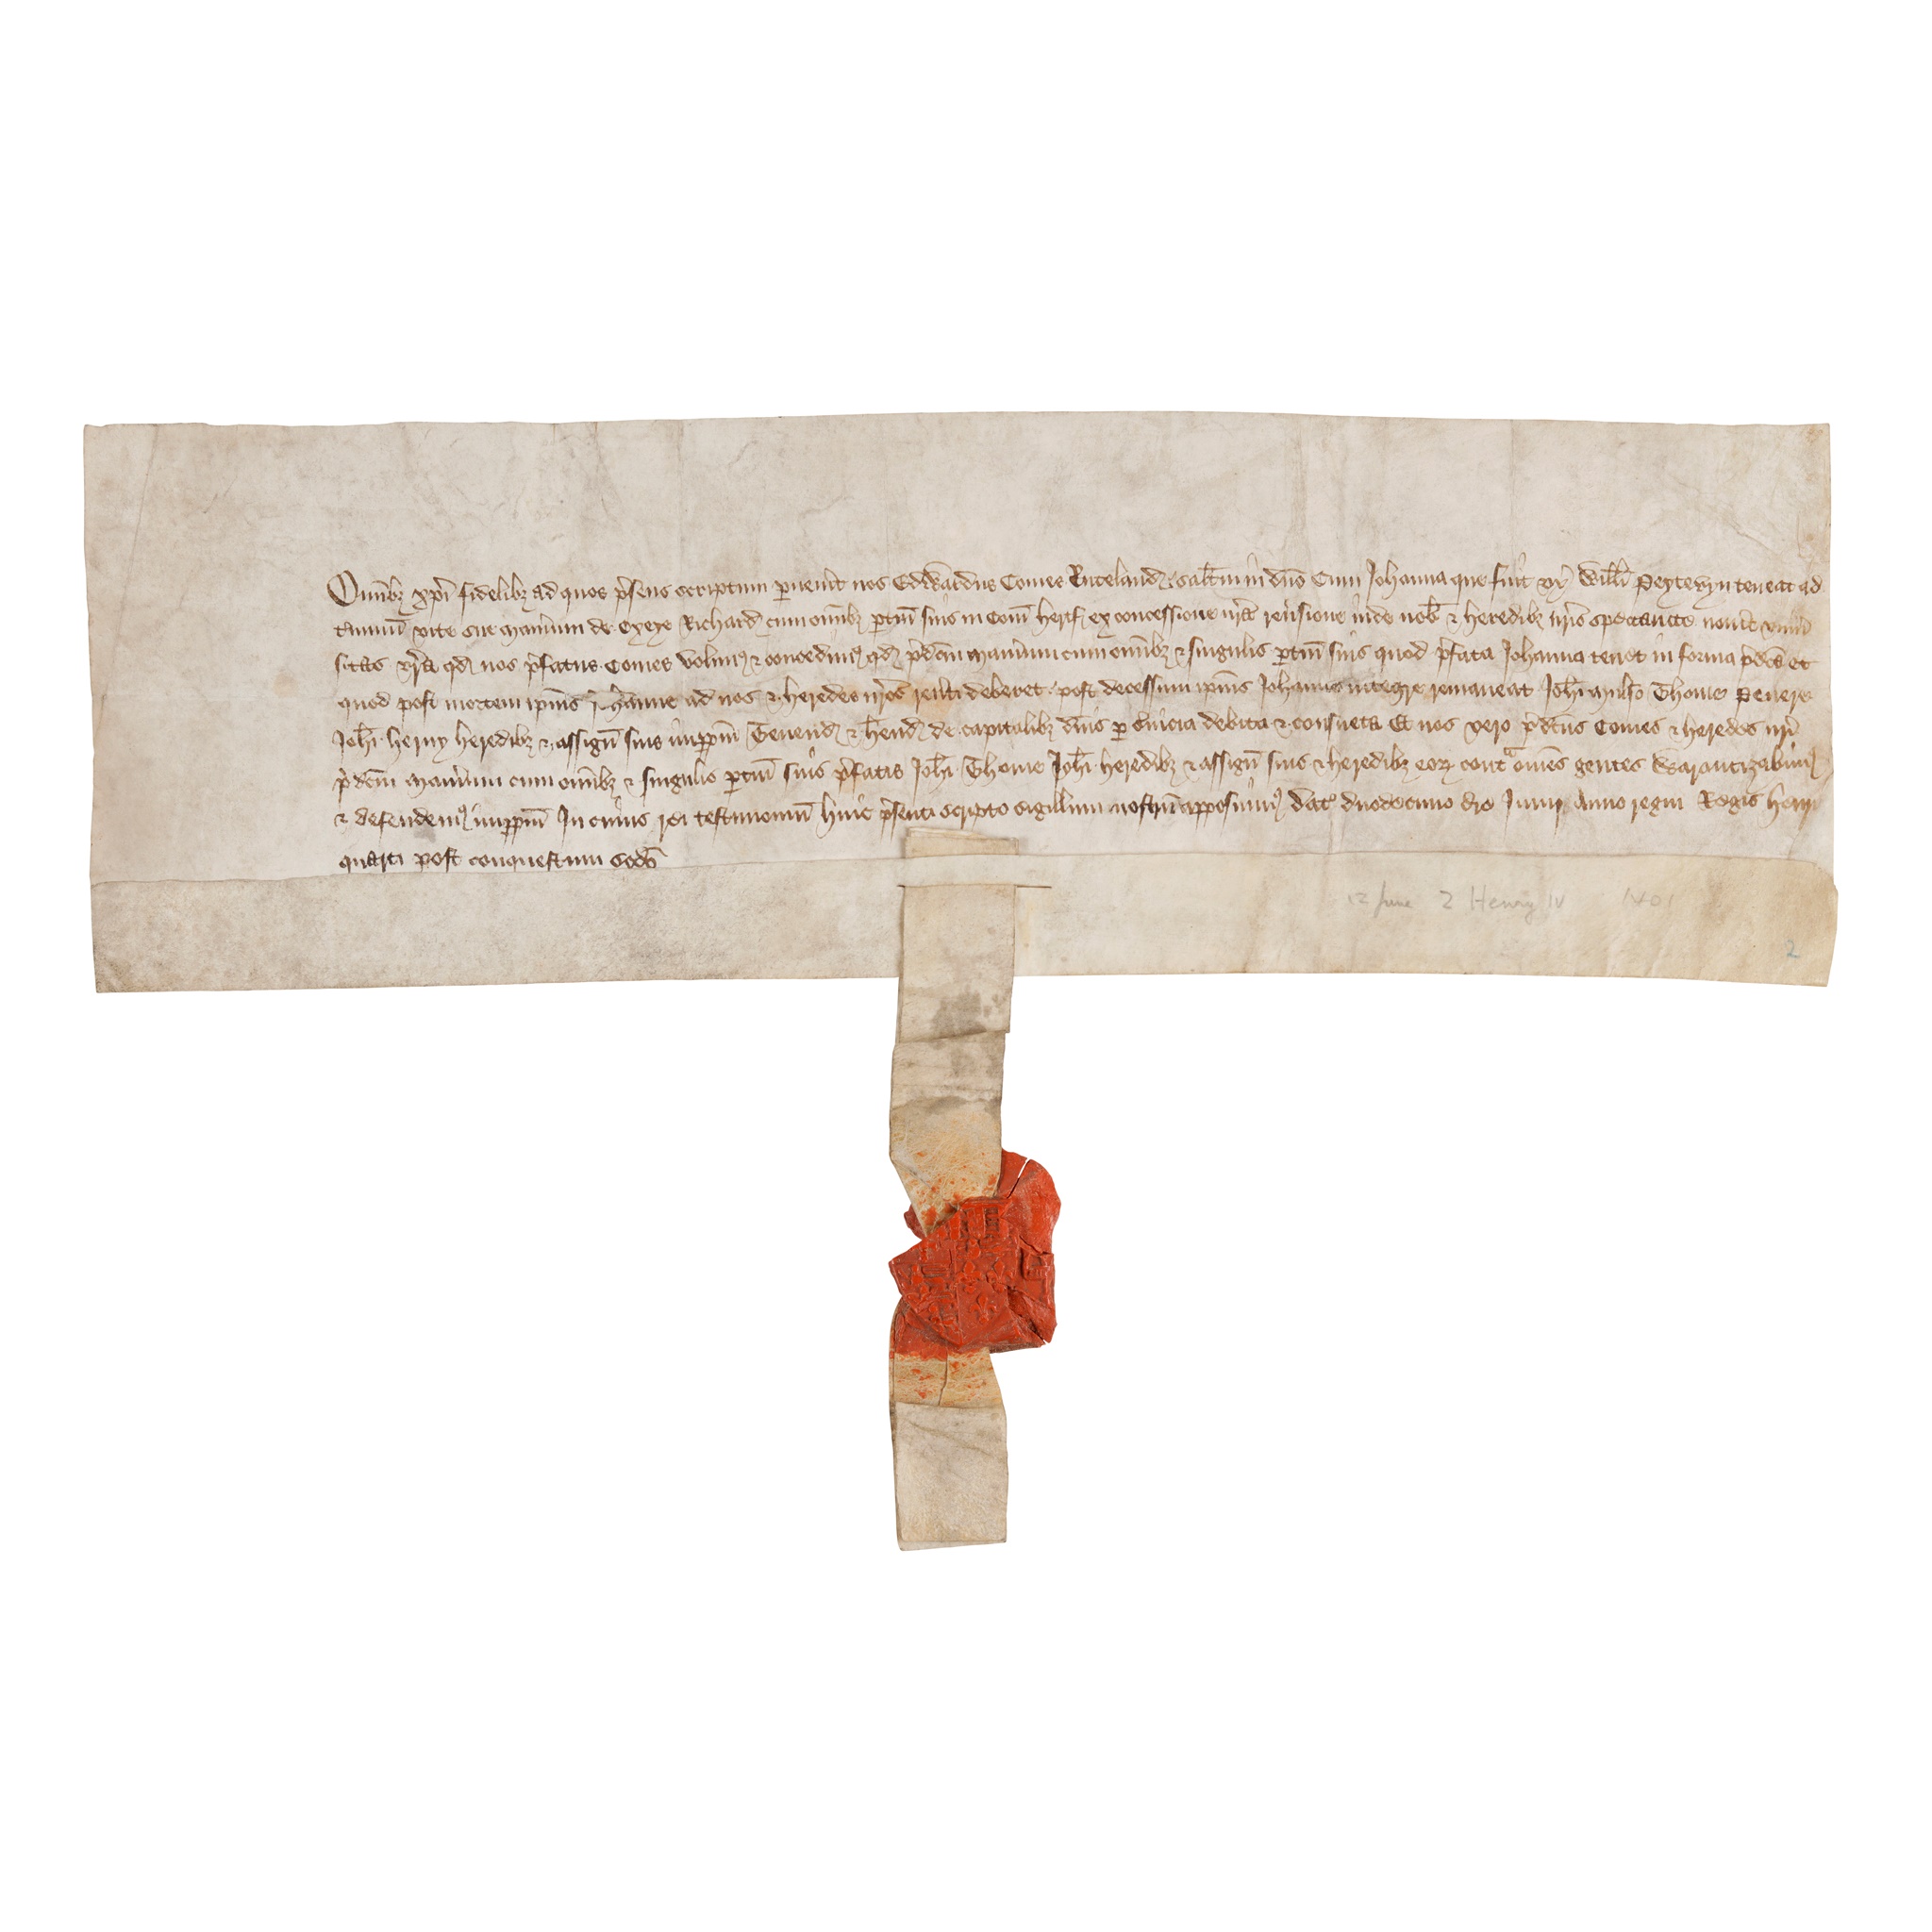 Omībȝ xp̄i fidelibȝ ad quos p̄sens scriptum pervenit nos Edwardus Comes Roteland salt̄m in dn̄o Cum Johanna que fuit ux̄ Willī Peytevyn teneat ad
t̄minū vite sue Maniū de Oxeye Richard cum om̄ibȝ ptin̄ suis in Com̄ Hertf ex concessione nr̄a rev̄sione inde nob̄ & heredibȝ nr̄is spectante nov̄it univ̄
sitas vr̄a qd nos p̄fatus Comes volum⁹ & concedim⁹ qd p̄dc̄m Maniūm cum om̄ibȝ & singulis ptin̄ suis quod p̄fata Johanna tenet in forma p̄dc̄a et
quod post mortem ip̄ius Johanne ad nos & heredes nr̄os rev̄ti deberet post decessum ip̄ius Johanne integre remaneat Joh̄i Thome Pevere
Joh̄i Herny heredibȝ & assign̄ suis imppm̄ Tenend & h̄end de capitalibȝ dn̄is p s̄vicia debita & consueta Et nos vero p̄dc̄us Comes & heredes nr̄i
p̄dc̄m Maniūm cum om̄ibȝ & singulis ptin̄ suis p̄fatis Joh̄i Thome Joh̄i heredibȝ & assign̄ suis & heredibȝ eorȝ contᵃ om̄es gentes Warantizabim⁹
& defendem⁹ imppm̄ In cuius rei testimoniū huic p̄senti scripto sigillum nostrū apposuim⁹ Dat duodecimo die Junij Anno regni Regis Henr
quarti post conquestum scdō
12 June 2 Henry IV 1401
2